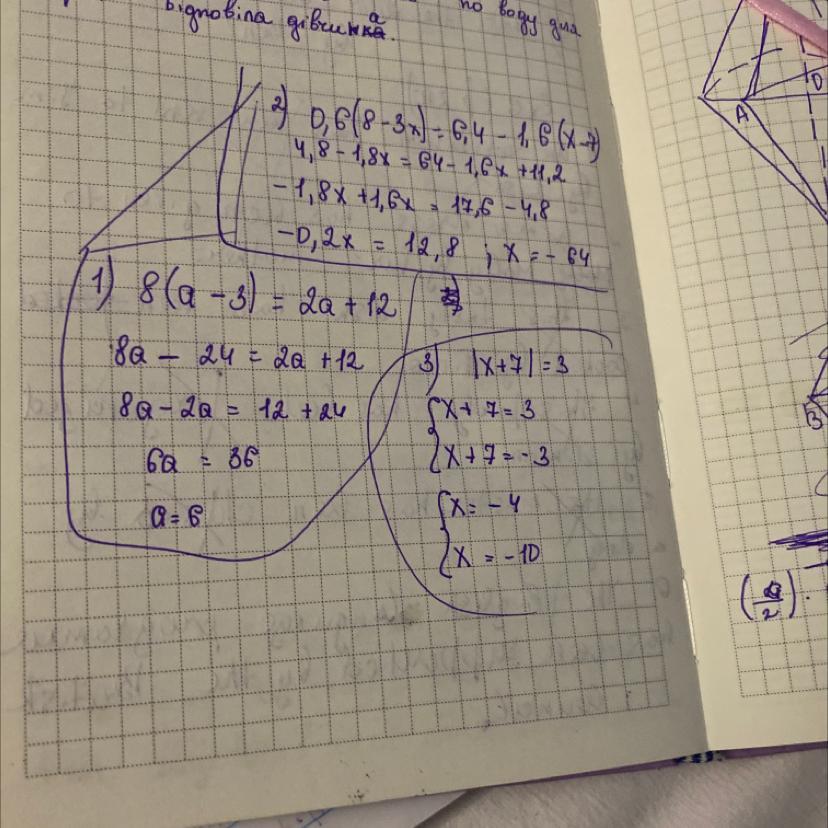 відповіла дівчинка.
по воду для
2) 0,6(8-3x) = 6,4 - 1,6(x-7)
4,8 - 1,8x = 64 - 1,6x + 11,2
-1,8x + 1,6x = 17,6 - 4,8
-0,2x = 12,8 ; x = -64
1) 8(a-3) = 2a + 12
8a - 24 = 2a + 12
8a - 2a = 12 + 24
6a = 36
a = 6
3) |x+7| = 3
{x + 7 = 3
{x + 7 = -3
{x = -4
{x = -10
A
D
B
(a/2).